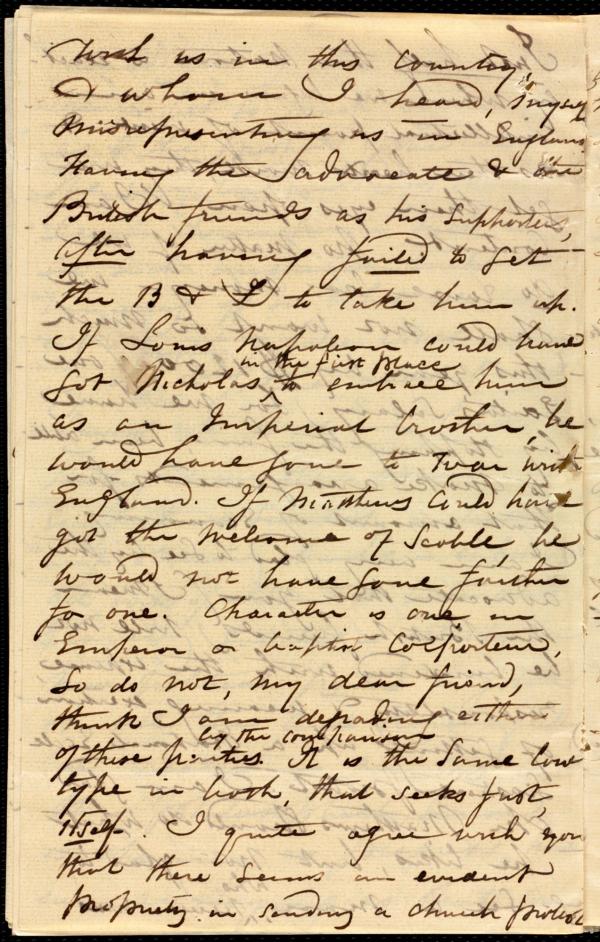 with us in this country,
& whom I heard, myself
misrepresenting us in England
Having the Advocate & the
British friends as his supporters,
after having failed to get
the B & F to take him up.
If Louis Napoleon could have
in the first place
got Nicholas, to embrace him
as an Imperial brother, he
would have gone to war with
England. If Matthews could have
got the welcome of Scoble, he
would not have gone further
for one. Character is one in
Emperor or baptist Colporteur,
So do not, my dear friend,
think I am degrading either
by the comparison
of these parties. It is the same low
type in both, that seeks just,
itself. I quite agree with you
that there seems an evident
propriety in sending a church